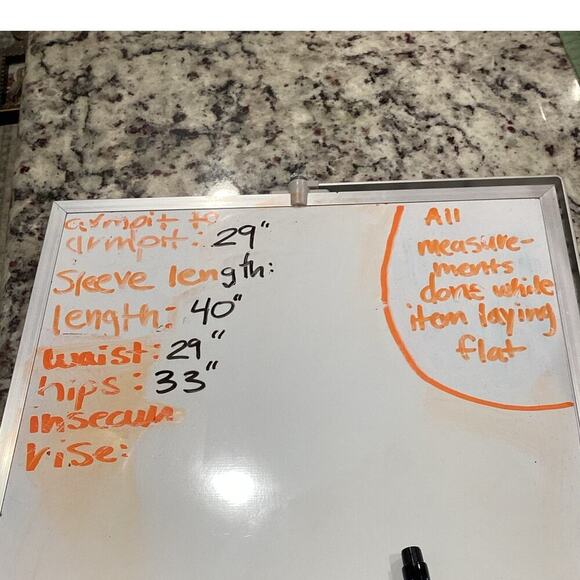 armpit to
armpit: 29"
Sleeve length:
length: 40"
waist: 29"
hips: 33"
inseam
rise:
All
measure-
ments
done while
item laying
flat